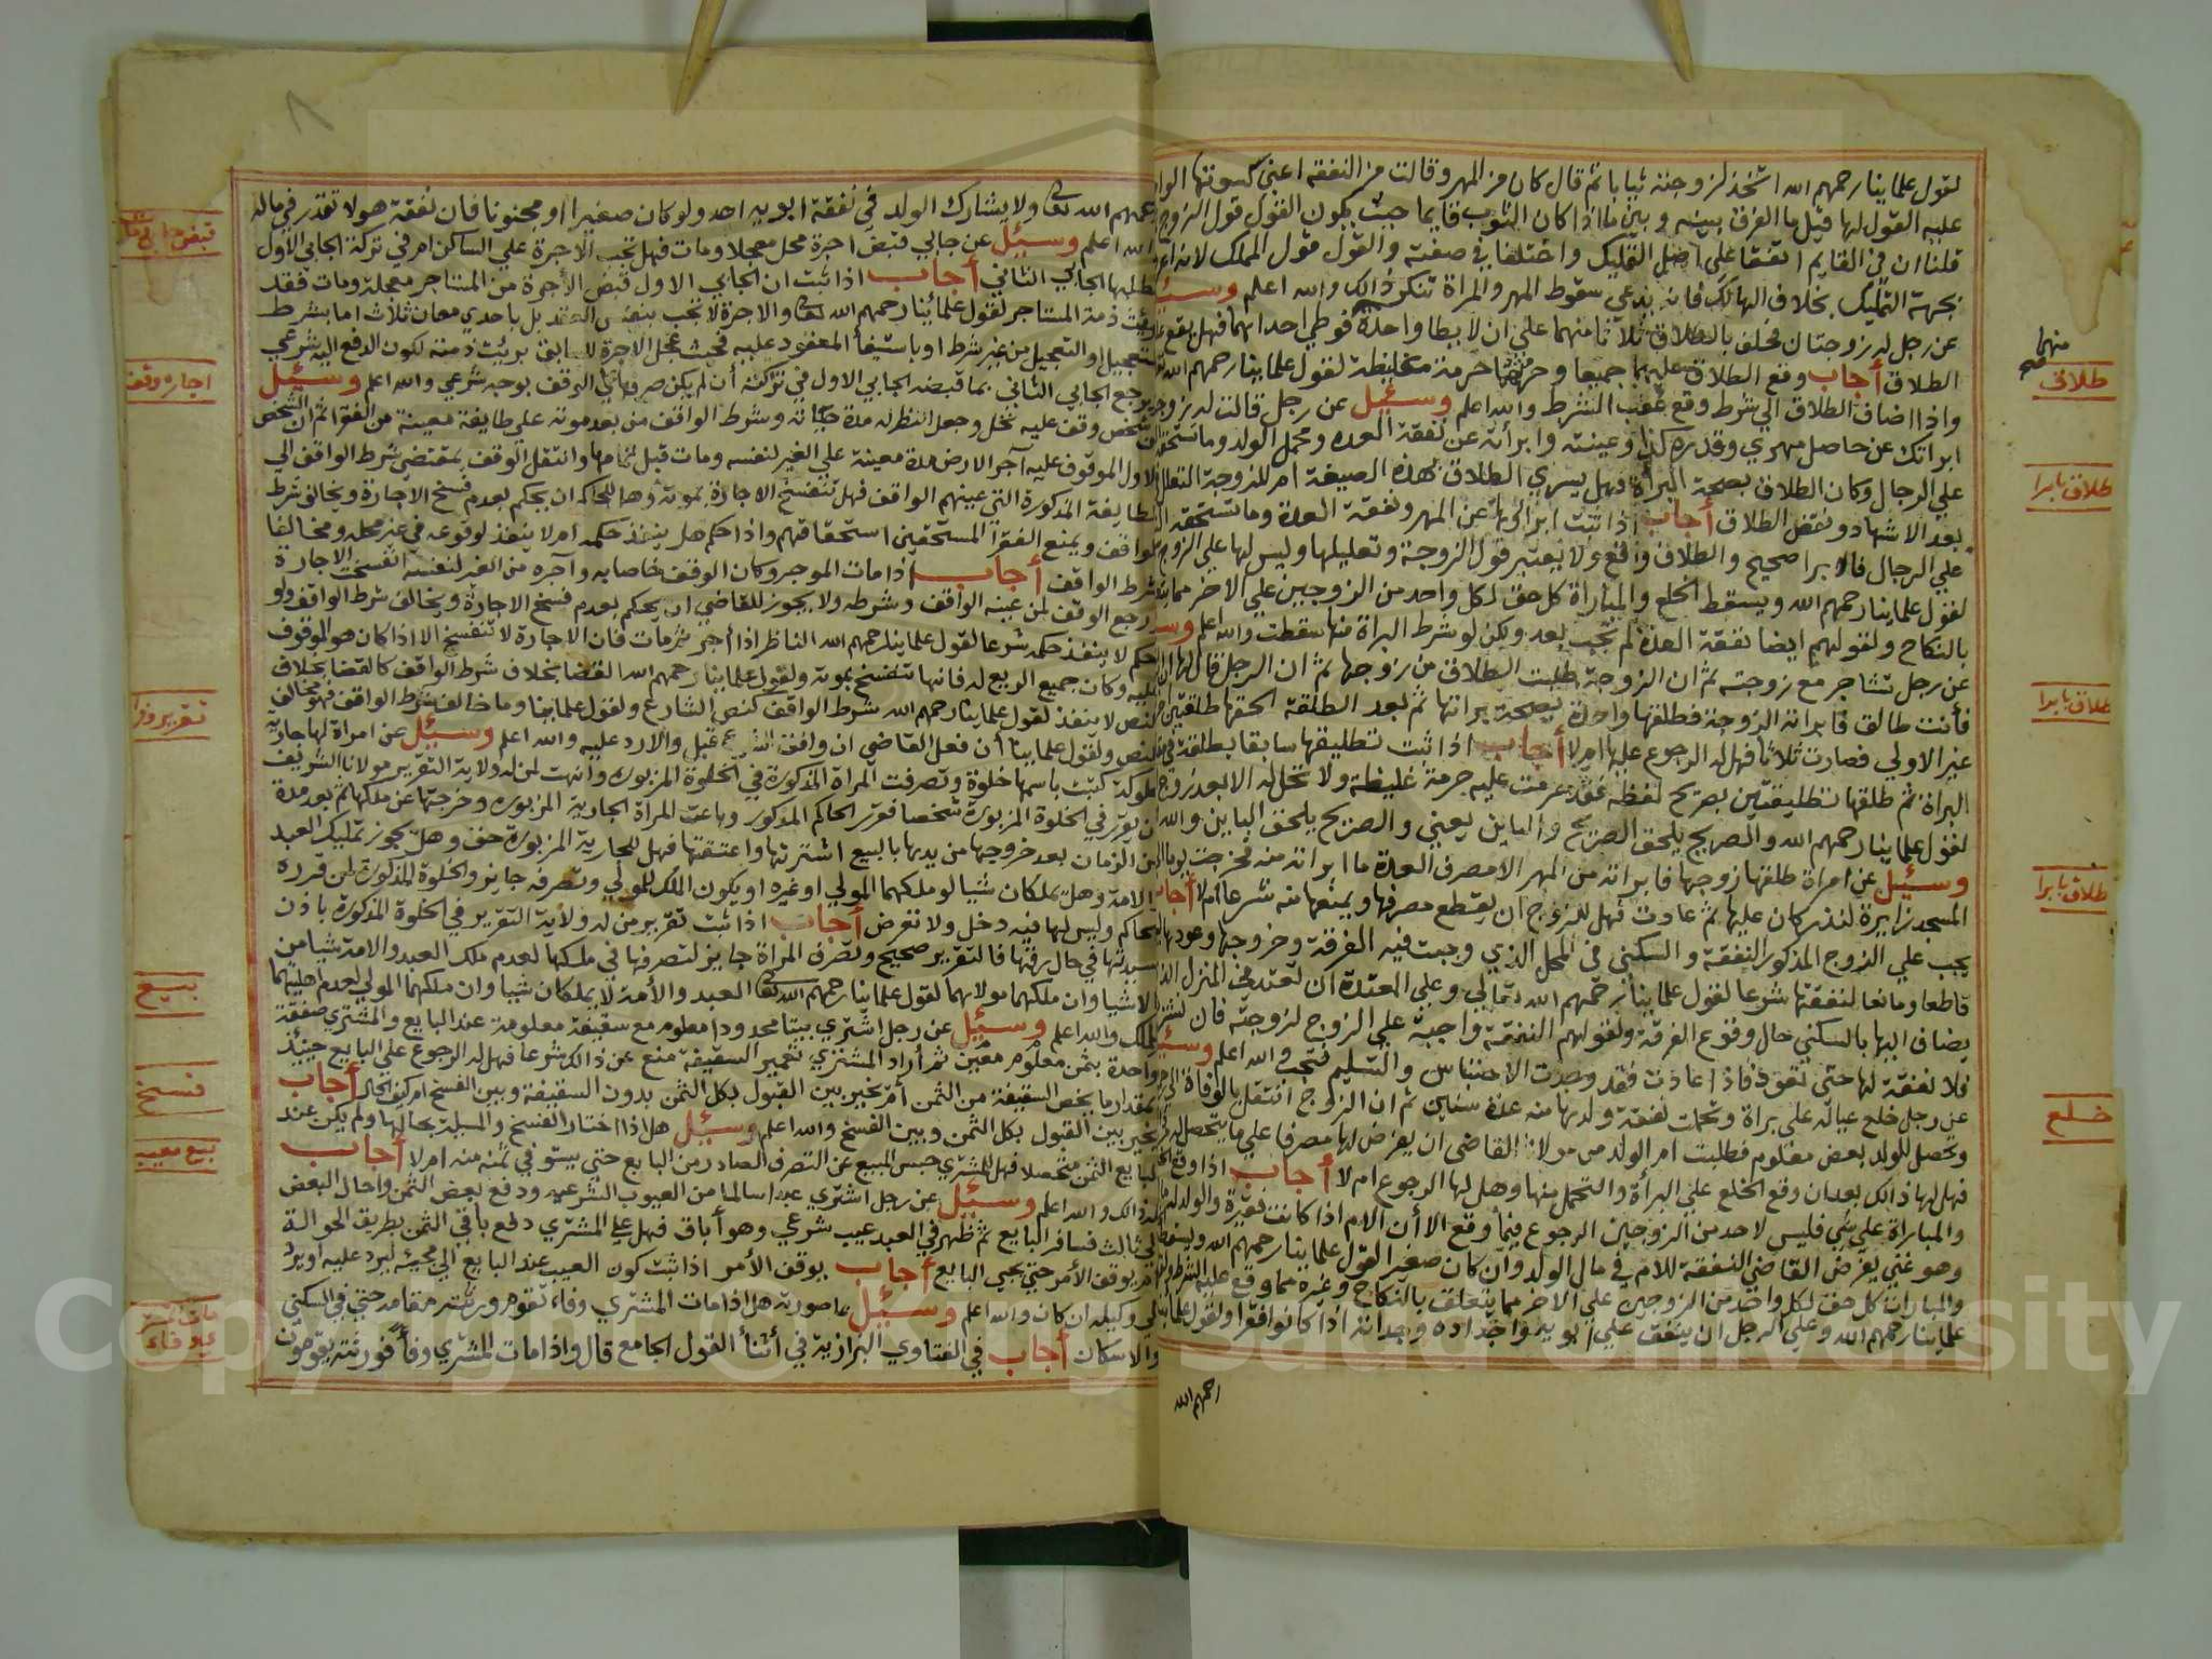 لقول علماينا رحمهم الله اتخذ لزوجته ثيابا ثم قال كان من المهر وقالت من النفقه اعني كسوتها
عليه القول لها قيل ما الفرق بينه وبين ما اذا كان الثوب قايما حيث يكون القول قول الزوج
قلنا ان في القايم اتفقا على اصل التمليك واختلفا في صفته والقول قول المملك لانه اعرف
بجهة التمليك بخلاف الهالك فانه يدعي سقوط المهر والمراة تنكر ذالك والله اعلم وسئيل
عن رجل له زوجتان فحلف بالطلاق ثلاثا منهما علي ان لا يطا واحدة فوطي احداهما فهل يقع
الطلاق أجاب وقع الطلاق عليهما جميعا حرمة مغليظة لقول علماينا رحمهم الله
واذا اضاف الطلاق الي شرط وقع عقب الشرط والله اعلم وسئيل عن رجل قالت له زوجته
ابراتك عن حاصل مهري وقدره كذا وعينته وابراته عن نفقة العده ومحمل الولد وما تستحق
علي الرجال وكان الطلاق بصحة البراة فهل يسري الطلاق بهذه الصيغة ام للزوجة التعلل
بعد الاشهاد ونقض الطلاق أجاب اذا ثبت ابرائها عن المهر ونفقة العدة وما تستحقه
علي الرجال فالابرا صحيح والطلاق واقع ولا يعتبر قول الزوجة وتعليلها وليس لها علي الزوج
لقول علماينا رحمهم الله ويسقط الخلع والمباراة كل حق لكل واحد من الزوجين علي الاخر مما
بالنكاح ولقولهم ايضا نفقة العدة لم تجب بعد ولكن لو شرط البراة منها سقطت والله اعلم
عن رجل تشاجر مع زوجته ثم ان الزوجة طلبت الطلاق من زوجها ثم ان الرجل قال لها
فأنت طالق فابراته الزوجة فطلقها واحدة بصحة براتها ثم بعد الطلقة الحقها طلقتين
غير الاولي فصارت ثلاثا فهل له الرجوع عليها ام لا أجاب اذا ثبت تطليقها سابقا بطلقة في
البراة ثم طلقها تطليقتين بصريح لفظه فقد حرمت عليه حرمة غليظة ولا تحل له الا بعد زوج
لقول علماينا رحمهم الله والصريح يلحق الصريح والباين يعني والصريح يلحق الباين والله
وسئيل عن امراة طلقها زوجها فابراته من المهر الا مصرف العدة ما ابراته منه فخرجت يوما
المسجد زايرة لنذر كان عليها ثم عادت فهل للزوج ان يقطع مصرفها ويمنعها منه شرعا ام لا أجاب
يجب علي الزوج المذكور النفقة والسكني في المحل الذي وجبت فيه الفرقة وخروجها وعودها
قاطعا ومانعا لنفقتها شرعا لقول علماينا رحمهم الله تعالي وعلي المعتدة ان تعتد في المنزل
يضاف اليها بالسكني حال وقوع الفرقة ولقولهم النفقة واجبة علي الزوج لزوجته فان نشزت
فلا نفقة لها حتي تعود فاذا عادت فقد وجدت الاحتباس والتسليم فتجب والله اعلم وسئيل
عن رجل خلع عياله علي براة وتحملت نفقة ولدها منه عدة سنين ثم ان الزوج انتقل بالوفاة
وتحصل للولد بعض معلوم فطلبت ام الولد من مولانا القاضي ان يفرض لها مصرفا علي ما يتحصل
فهل لها ذالك بعد ان وقع الخلع علي البرأة والتحمل منها وهل لها الرجوع ام لا أجاب اذا وقع
والمباراة علي شي فليس لاحد من الزوجين الرجوع فيما وقع الا أن الام اذا كانت فقيرة والولد
وهو غني يفرض القاضي النفقة للام في مال الولد وان كان صغيرا لقول علماينا رحمهم الله ويسقط
والمبارات كل حق لكل واحد من الزوجين علي الاخر مما يتعلق بالنكاح وغيره مما وقع عليه الشرط
علماينا رحمهم الله وعلي الرجل ان ينفق علي ابويه واجداده وجداته اذا كانوا فقرا ولقول علما
رحمهم الله
منهما
صح
طلاق
طلاق بابرا
طلاق بابرا
طلاق بابرا
خلع
رحمهم الله تعالى ولا يشارك الولد في نفقة ابويه احد ولو كان صغيرا او مجنونا فان نفقة هولا تقدر في ماله
والله اعلم وسئيل عن جابي قبض اجرة محل معجلا ومات فهل تجب الاجرة علي الساكن ام في تركة الجابي الأول
طلبها الجابي الثاني أجاب اذا ثبت ان الجابي الاول قبض الأجرة من المستاجر معجلة ومات فقد
برئت ذمة المستاجر لقول علمائنا رحمهم الله تعالى والاجرة لا تجب بنفس العقد بل باحدي معان ثلاث اما بشرط
التعجيل او التعجيل من غير شرط او باستيفأ المعقود عليه فحيث عجل الاجرة للسابق برئت ذمته لكون الدفع اليه شرعي
ويرجع الجابي الثاني بما قبضه الجابي الاول في تركته أن لم يكن صرفها في الوقف بوجه شرعي والله اعلم وسئيل
شخص وقف عليه نخل وجعل النظر له مدة حياته وشرط الواقف من بعد موته علي طايفة معينة من الفقرا ثم ان الشخص
الاول الموقوف عليه آجر الارض مدة معينة علي الغير لنفسه ومات قبل تمامها وانتقل الوقف بمقتضي شرط الواقف الي
الطايفة المذكورة التي عينهم الواقف فهل تنفسخ الاجارة بموته وهل للحاكم ان يحكم بعدم فسخ الاجارة ويخالف شرط
الواقف ويمنع الفقرأ المستحقين استحقاقهم واذا حكم هل ينفذ حكمه ام لا ينفذ لوقوعه في غير محله ومخالفا
شرط الواقف أجاب اذا مات الموجر وكان الوقف خاصا به وآجره من الغير لنفسه انفسخت الاجارة
ورجع الوقف لمن عينه الواقف وشرطه ولا يجوز للقاضي ان يحكم بعدم فسخ الاجارة ويخالف شرط الواقف ولو
حكم لا ينفذ حكمه شرعا لقول علماينا رحمهم الله الناظر اذا اجر ثم مات فان الاجارة لا تنفسخ الا اذا كان هو الموقوف
عليه وكان جميع الريع له فانها تنفسخ بموته ولقول علماينا رحمهم الله القضا بخلاف شرط الواقف كالقضا بخلاف
النص لا ينفذ لقول علماينا رحمهم الله شرط الواقف كنص الشارع ولقول علماينا وما خالف شرط الواقف فهو مخالف
للنص ولقول علماينا أن فعل القاضي ان وافق الشرع قبل والا رد عليه والله اعلم وسئيل عن امراة لها جارية
مملوكة كتبت باسمها خلوة وتصرفت المراة المذكورة في الخلوة المزبورة وانهت لمن له ولاية التقرير مولانا الشريف
ان يقرر في الخلوة المزبورة شخصا فقرر الحاكم المذكور وباعت المرأة الجارية المزبورة وخرجتها عن ملكها ثم بعد مدة
من الزمان بعد خروجها من يدها بالبيع اشترتها واعتقتها فهل للجارية المزبورة حق وهل يجوز تمليك العبد
والامة وهل يملكان شيا لو ملكهما المولي او غيره او يكون الملك للمولي وتصرفه جايز والخلوة المذكورة لمن قرره
الحاكم وليس لها فيه دخل ولا تعرض أجاب اذا ثبت تقرير من له ولاية التقرير في الخلوة المذكورة باذن
سيدتها في حال رقها فالتقرير صحيح وتصرف المراة جايز لتصرفها في ملكها لعدم ملك العبد والامة شيا من
الاشيا وان ملكهما مولاهما لقول علماينا رحمهم الله تعالى العبد والأمة لا يملكان شيا وان ملكهما المولي لعدم اهليتهما
للملك والله اعلم وسئيل عن رجل اشتري بيتا محدودا معلوم مع سقيفة معلومة عند البايع والمشتري صفقة
واحدة بثمن معلوم معين ثم أراد المشتري تعمير السقيفة منع عن ذالك شرعا فهل له الرجوع علي البايع حينيذ
بمقدار ما يخص السقيفة من الثمن أم يخير بين القبول بكل الثمن بدون السقيفة وبين الفسخ ام كيف الحال أجاب
يخير بين القبول بكل الثمن وبين الفسخ والله اعلم وسئيل هل اذا اختار الفسخ والمسئلة بحالها ولم يكن عند
البايع الثمن متحصلا فهل للمشتري حبس المبيع عن التصرف الصادر من البايع حتي يستوفي ثمنه منه ام لا أجاب
له ذالك والله اعلم وسئيل عن رجل اشتري عبدا سالما من العيوب الشرعيه ودفع بعض الثمن واحال البعض
لي ثالث فسافر البايع ثم ظهر في العبد عيب شرعي وهو أباق فهل علي المشتري دفع باقي الثمن بطريق الحوالة
ام يوقف الأمر حتي يجي البايع أجاب يوقف الأمر اذا ثبت كون العيب عند البايع الي مجيئه ليرد عليه او يرد
علي وكيله ان كان والله اعلم وسئيل ما صورته هل اذا مات المشتري وفاء تقوم ورثته مقامه حتي في السكني
والاسكان أجاب في الفتاوي البزازية في أثنأ القول الجامع قال واذا مات المشتري وفأ فورثته يقومون
اجاره وقف
بيع
فسخ
بيع معيب
Copyright © King Saud University